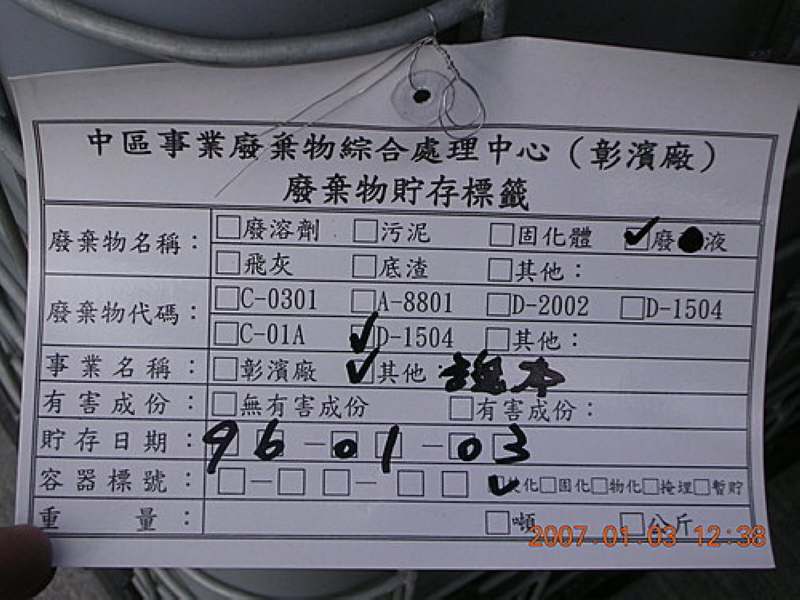 中區事業廢棄物綜合處理中心（彰濱廠）
廢棄物貯存標籤
廢棄物名稱： □廢溶劑 □污泥 □固化體 ☑廢液
□飛灰 □底渣 □其他：
廢棄物代碼： □C-0301 □A-8801 □D-2002 □D-1504
□C-01A ☑D-1504 □其他：
事業名稱： □彰濱廠 ☑其他
有害成份： □無有害成份 □有害成份：
貯存日期： 96-01-03
容器標號： □-□□-□□ ☑化□固化□物化□掩埋□暫貯
重量： □噸 □公斤
2007.01.03 12:38